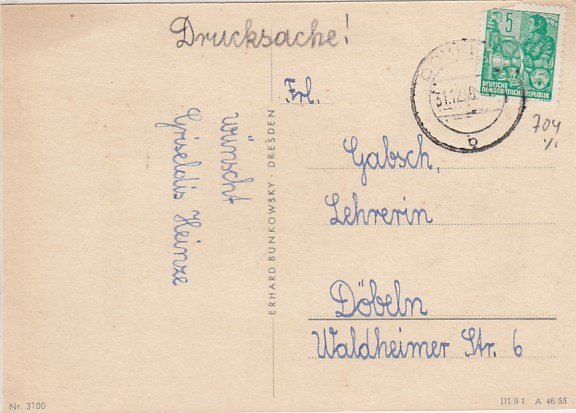 Drucksache!
5
DEUTSCHE
DEMOKRATISCHE REPUBLIK
31.12
b
704
Frl.
Gabsch,
Lehrerin
Döbeln
Waldheimer Str. 6
wünscht
Griseldis Heinze
ERHARD BUNKOWSKY · DRESDEN
Nr. 3100
III 9 1 A 46 55